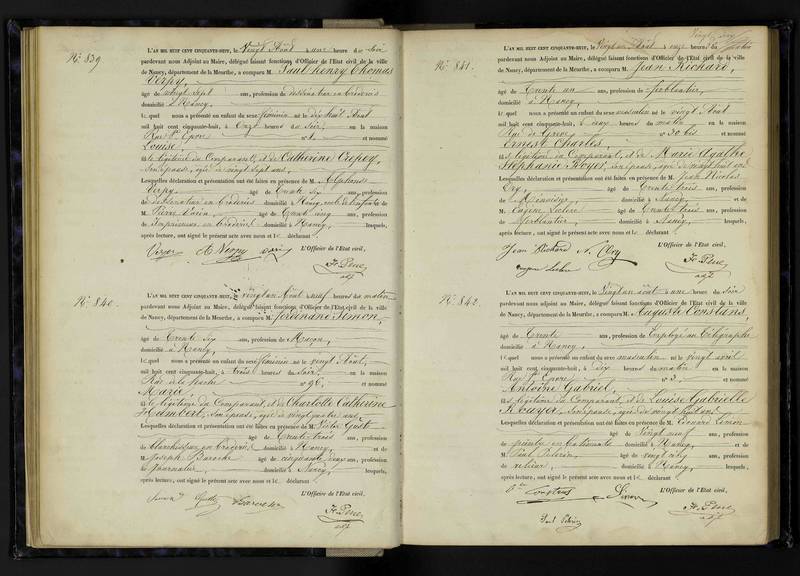 N° 839
L'AN MIL HUIT CENT CINQUANTE-HUIT, le Vingt Août à une heure du Soir
pardevant nous Adjoint au Maire, délégué faisant fonctions d'Officier de l'Etat civil de la ville
de Nancy, département de la Meurthe, a comparu M. Paul henry Thomas
âgé de vingt sept ans, profession de dessinateur en broderies
domicilié à Nancy,
lequel nous a présenté un enfant du sexe féminin né le dix huit Août
mil huit cent cinquante-huit, à Onze heures du Soir, en la maison
Rue St Epvre n° 1. et nommé
Louise,
fille légitime du Comparant, et de Catherine Crépey,
Son épouse, agée de vingt sept ans,
Lesquelles déclaration et présentation ont été faites en présence de M. Alphonse
âgé de trente six ans, profession
de dessinateur en broderies domicilié à Nancy, oncle de l'enfant et de
M. Pierre âgé de trente cinq ans, profession
de Imprimeur en broderies domicilié à Nancy, lesquels,
après lecture, ont signé le présent acte avec nous et le déclarant
L'Officier de l'Etat civil,
adjt
N° 840.
L'AN MIL HUIT CENT CINQUANTE-HUIT, le vingt un Août à neuf heures du matin
pardevant nous Adjoint au Maire, délégué faisant fonctions d'Officier de l'Etat civil de la ville
de Nancy, département de la Meurthe, a comparu M. Ferdinand Simon,
âgé de trente six ans, profession de Maçon,
domicilié à Nancy,
lequel nous a présenté un enfant du sexe féminin né le vingt Août,
mil huit cent cinquante-huit, à trois heures du Soir, en la maison
Rue de la n° 96, et nommé
Marie,
fille légitime du Comparant, et de Charlotte Catherine
Humbert, Son épouse, agée de vingt quatre ans,
Lesquelles déclaration et présentation ont été faites en présence de M. Victor
âgé de trente trois ans, profession
de blanchisseur en broderies domicilié à Nancy, et de
M. Joseph Baroche âgé de cinquante deux ans, profession
de Journalier domicilié à Nancy, lesquels,
après lecture, ont signé le présent acte avec nous et le déclarant
L'Officier de l'Etat civil,
adjt
N° 841.
L'AN MIL HUIT CENT CINQUANTE-HUIT, le Vingt un Août à onze heures du matin
pardevant nous Adjoint au Maire, délégué faisant fonctions d'Officier de l'Etat civil de la ville
de Nancy, département de la Meurthe, a comparu M. Jean Richard,
âgé de trente un ans, profession de ferblantier,
domicilié à Nancy,
lequel nous a présenté un enfant du sexe masculin né le vingt Août
mil huit cent cinquante-huit, à onze heures du matin en la maison
Rue de Grève n° 30 bis et nommé
Ernest Charles,
fils légitime du Comparant, et de Marie Agathe
Stéphanie Son épouse, agée de vingt huit ans
Lesquelles déclaration et présentation ont été faites en présence de M. Jean Nicolas
âgé de trente trois ans, profession
de Menuisier domicilié à Nancy, et de
M. Eugène Leclerc âgé de trente trois ans, profession
de ferblantier domicilié à Nancy, lesquels,
après lecture, ont signé le présent acte avec nous et le déclarant
L'Officier de l'Etat civil,
Jean Richard
eugene Leclerc
adjt
N° 842.
L'AN MIL HUIT CENT CINQUANTE-HUIT, le Vingt un août à une heure du Soir
pardevant nous Adjoint au Maire, délégué faisant fonctions d'Officier de l'Etat civil de la ville
de Nancy, département de la Meurthe, a comparu M. Auguste Constans,
âgé de trente ans, profession de Employé au télégraphe
domicilié à Nancy,
lequel nous a présenté un enfant du sexe masculin né le vingt
mil huit cent cinquante-huit, à dix heures du matin en la maison
Rue St Epvre n° 3, et nommé
Antoine Gabriel,
fils légitime du Comparant, et de Louise Gabrielle
Mayer, Son épouse, agée de vingt huit ans
Lesquelles déclaration et présentation ont été faites en présence de M. Edouard Simon
âgé de Vingt neuf ans, profession
de domicilié à Nancy, et de
M. Paul âgé de vingt cinq ans, profession
de relieur, domicilié à Nancy, lesquels,
après lecture, ont signé le présent acte avec nous et le déclarant
L'Officier de l'Etat civil,
Constans Simon
adjt